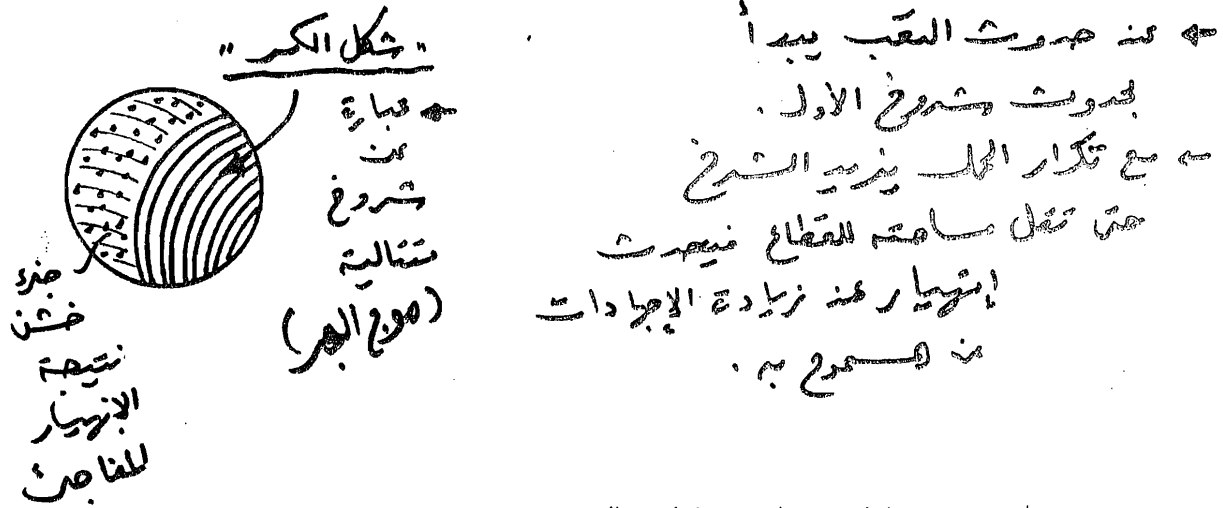 ← عند حدوث التعب يبدأ
بحدوث شروخ الأول .
← مع تكرار الحمل يزيد الشرخ
حتى تقل مساحته القطاع فيحدث
إنهيار عند زيادة الإجهادات
عن المسموح به .
"شكل الكسر"
← عبارة
عن
شروخ
متتالية
(موج البحر)
جزء
خشن
نتيجة
الإنهيار
المفاجئ